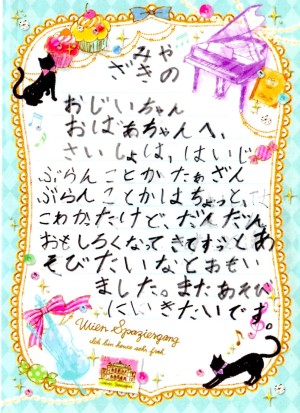 みや
ざきの
おじいちゃん
おばあちゃんへ、
さいしょは、はいじ
ぶらんことかたあざん
ぶらんことかはちょっと、
こわかたけど、だんだん
おもしろくなってきてずっとあ
そびたいなとおもい
ました。またあそび
にいきたいです。
Wien Spaziergang
Ich bin heute sehr froh.